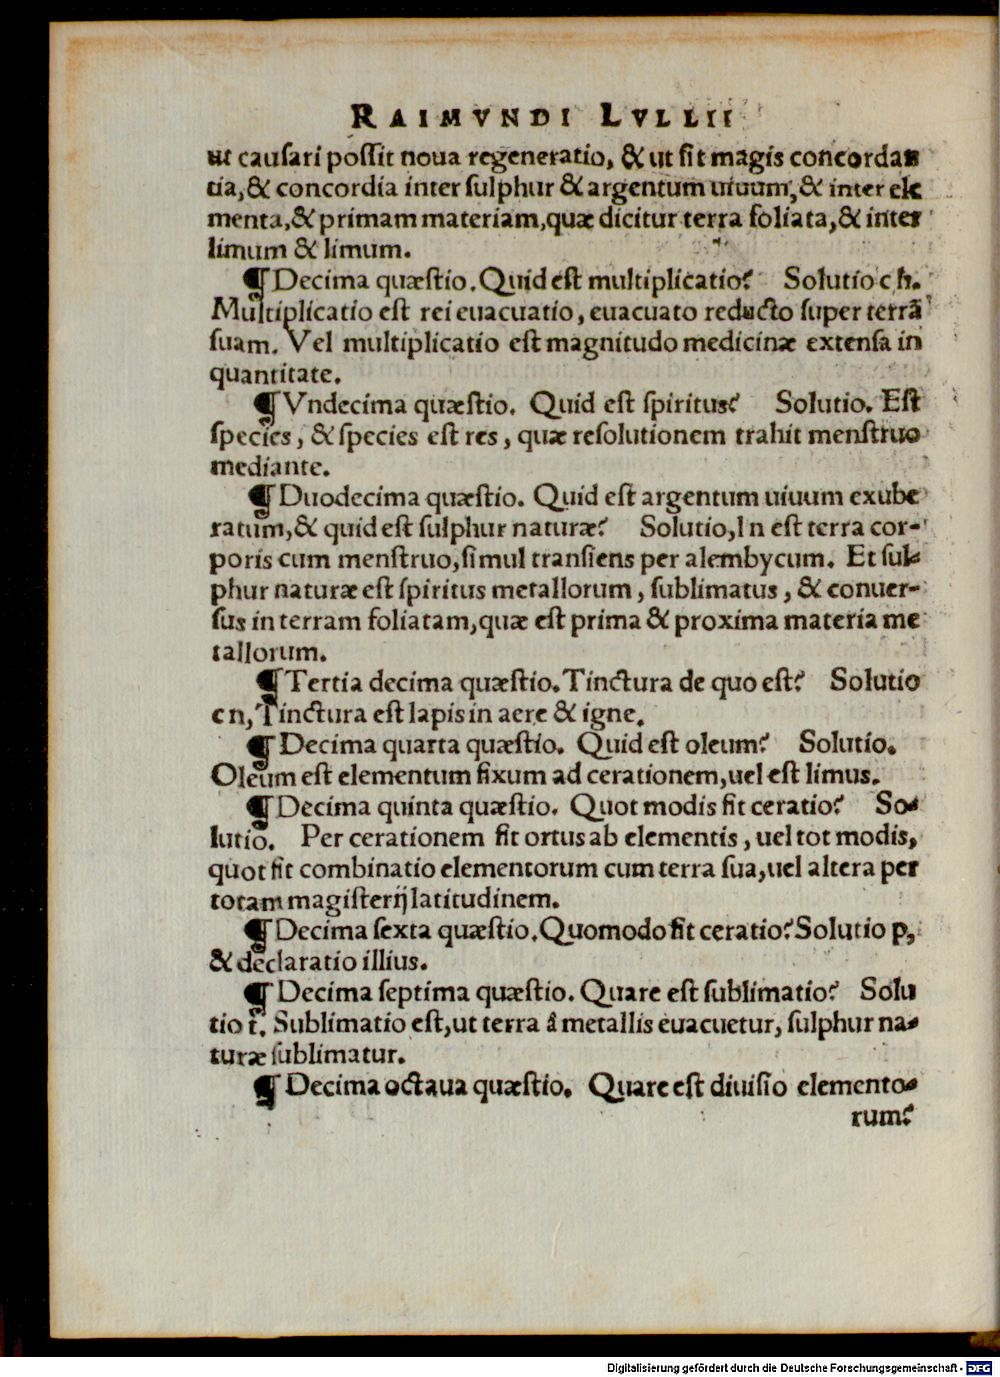 RAIMVNDI LVLLII
ut causari possit noua regeneratio, & ut sit magis concordan
tia,& concordia inter sulphur & argentum uiuum,& inter ele
menta,& primam materiam,quæ dicitur terra foliata,& inter
limum & limum.
¶ Decima quæstio. Quid est multiplicatio? Solutio c h.
Multiplicatio est rei euacuatio, euacuato reducto super terrã
suam. Vel multiplicatio est magnitudo medicinæ extensa in
quantitate.
¶ Vndecima quæstio. Quid est spiritus? Solutio. Est
species, & species est res, quæ resolutionem trahit menstruo
mediante.
¶ Duodecima quæstio. Quid est argentum uiuum exube
ratum,& quid est sulphur naturæ? Solutio,l n est terra cor-
poris cum menstruo,simul transiens per alembycum. Et sul-
phur naturæ est spiritus metallorum, sublimatus, & conuer-
sus in terram foliatam,quæ est prima & proxima materia me
tallorum.
¶ Tertia decima quæstio. Tinctura de quo est? Solutio
c n, Tinctura est lapis in aere & igne.
¶ Decima quarta quæstio. Quid est oleum? Solutio.
Oleum est elementum fixum ad cerationem,uel est limus.
¶ Decima quinta quæstio. Quot modis fit ceratio? So-
lutio. Per cerationem fit ortus ab elementis, uel tot modis,
quot fit combinatio elementorum cum terra sua,uel altera per
totam magisterij latitudinem.
¶ Decima sexta quæstio. Quomodo fit ceratio? Solutio p,
& declaratio illius.
¶ Decima septima quæstio. Quare est sublimatio? Solu
tio t. Sublimatio est,ut terra â metallis euacuetur, sulphur na-
turæ sublimatur.
¶ Decima octaua quæstio. Quare est diuisio elemento-
rum?
Digitalisierung gefördert durch die Deutsche Forschungsgemeinschaft - DFG